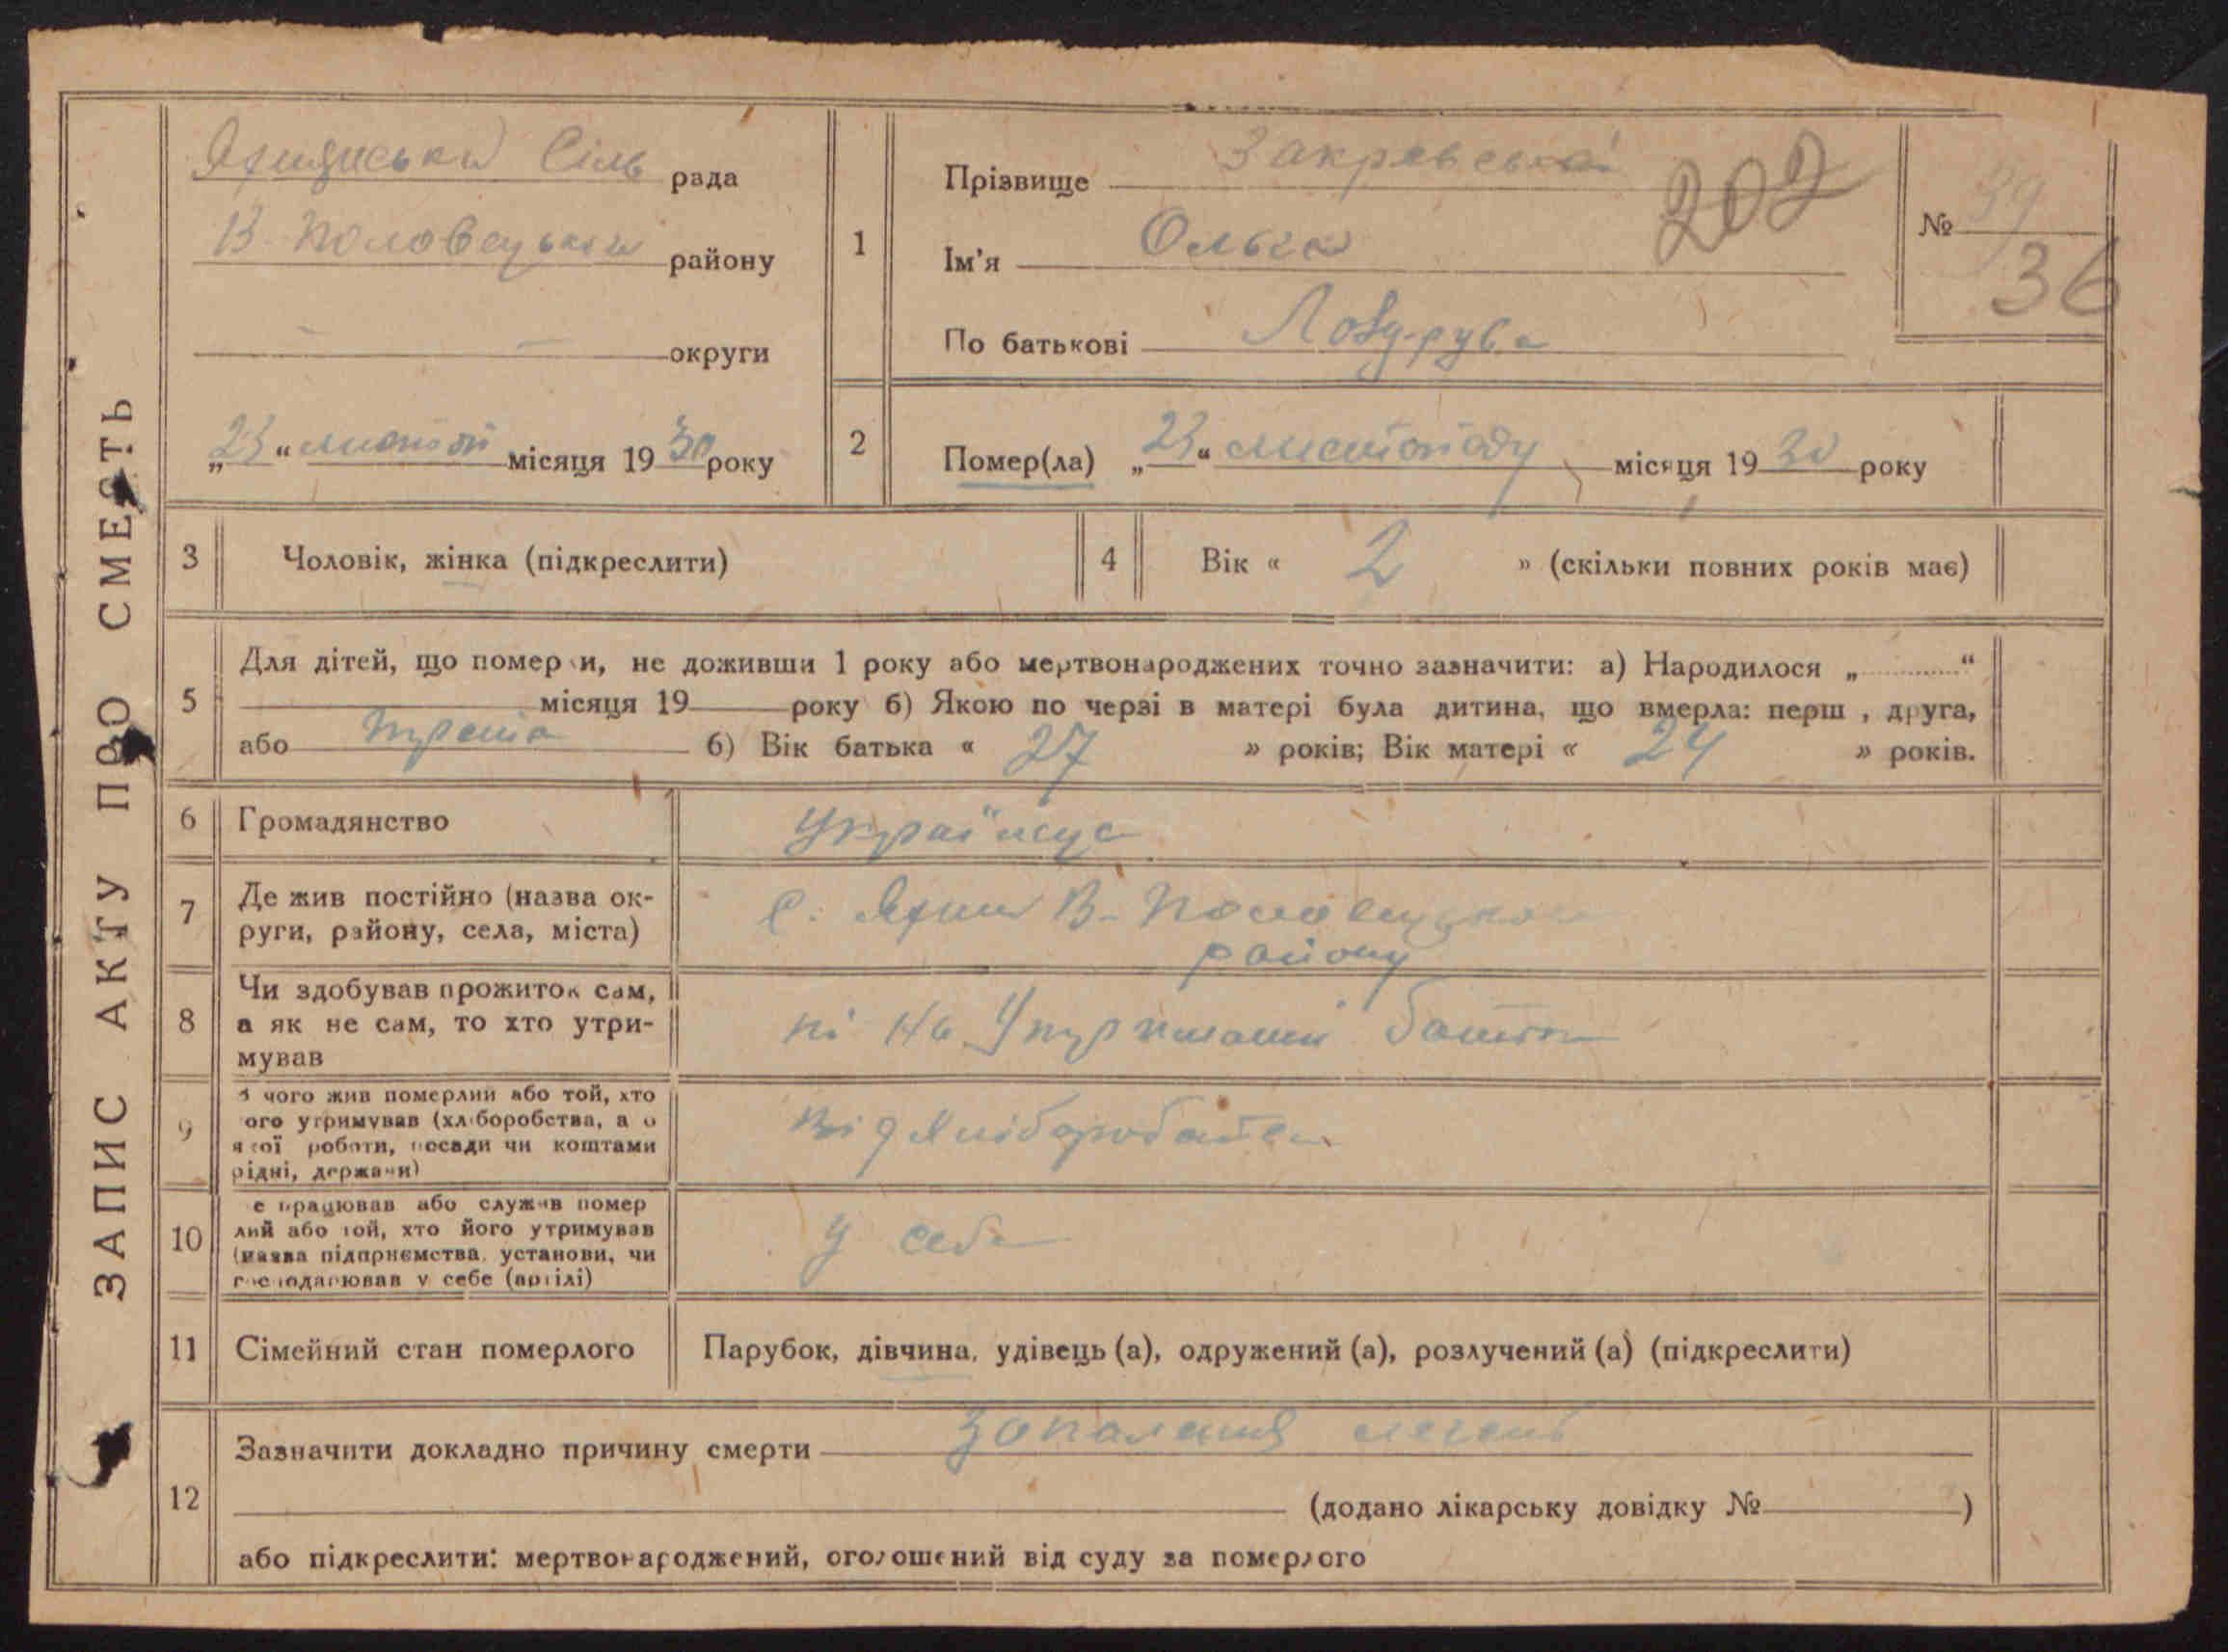 ЗАПИС АКТУ ПРО СМЕРТЬ
Сіль рада
В-Половецький району
округи
„23“ листоп місяця 1930 року
1
Прізвище Закревська
Ім'я Ольга
По батькові
202
№ 39
36
2
Помер(ла) „23“ листопаду місяця 1930 року
3
Чоловік, жінка (підкреслити)
4
Вік « 2 » (скільки повних років має)
5
Для дітей, що померли, не доживши 1 року або мертвонароджених точно зазначити: а) Народилося „ “
місяця 19 року б) Якою по черзі в матері була дитина, що вмерла: перш , друга,
або третя б) Вік батька « 27 » років; Вік матері « 24 » років.
6
Громадянство
Українка
7
Де жив постійно (назва ок-
руги, району, села, міста)
с. В-Половецького
району
8
Чи здобував прожиток сам,
а як не сам, то хто утри-
мував
ні На Утриманні батька
9
З чого жив померлий або той, хто
ого утримував (хліборобства, а о
якої роботи, посади чи коштами
рідні, держави)
від хліборобства
10
е працював або служив помер
лий або той, хто його утримував
(назва підприємства, установи, чи
господарював у себе (артілі)
У себе
11
Сімейний стан померлого
Парубок, дівчина, удівець (а), одружений (а), розлучений (а) (підкреслити)
12
Зазначити докладно причину смерти запалення легень
(додано лікарську довідку № )
або підкреслити: мертвонароджений, оголошений від суду за померлого